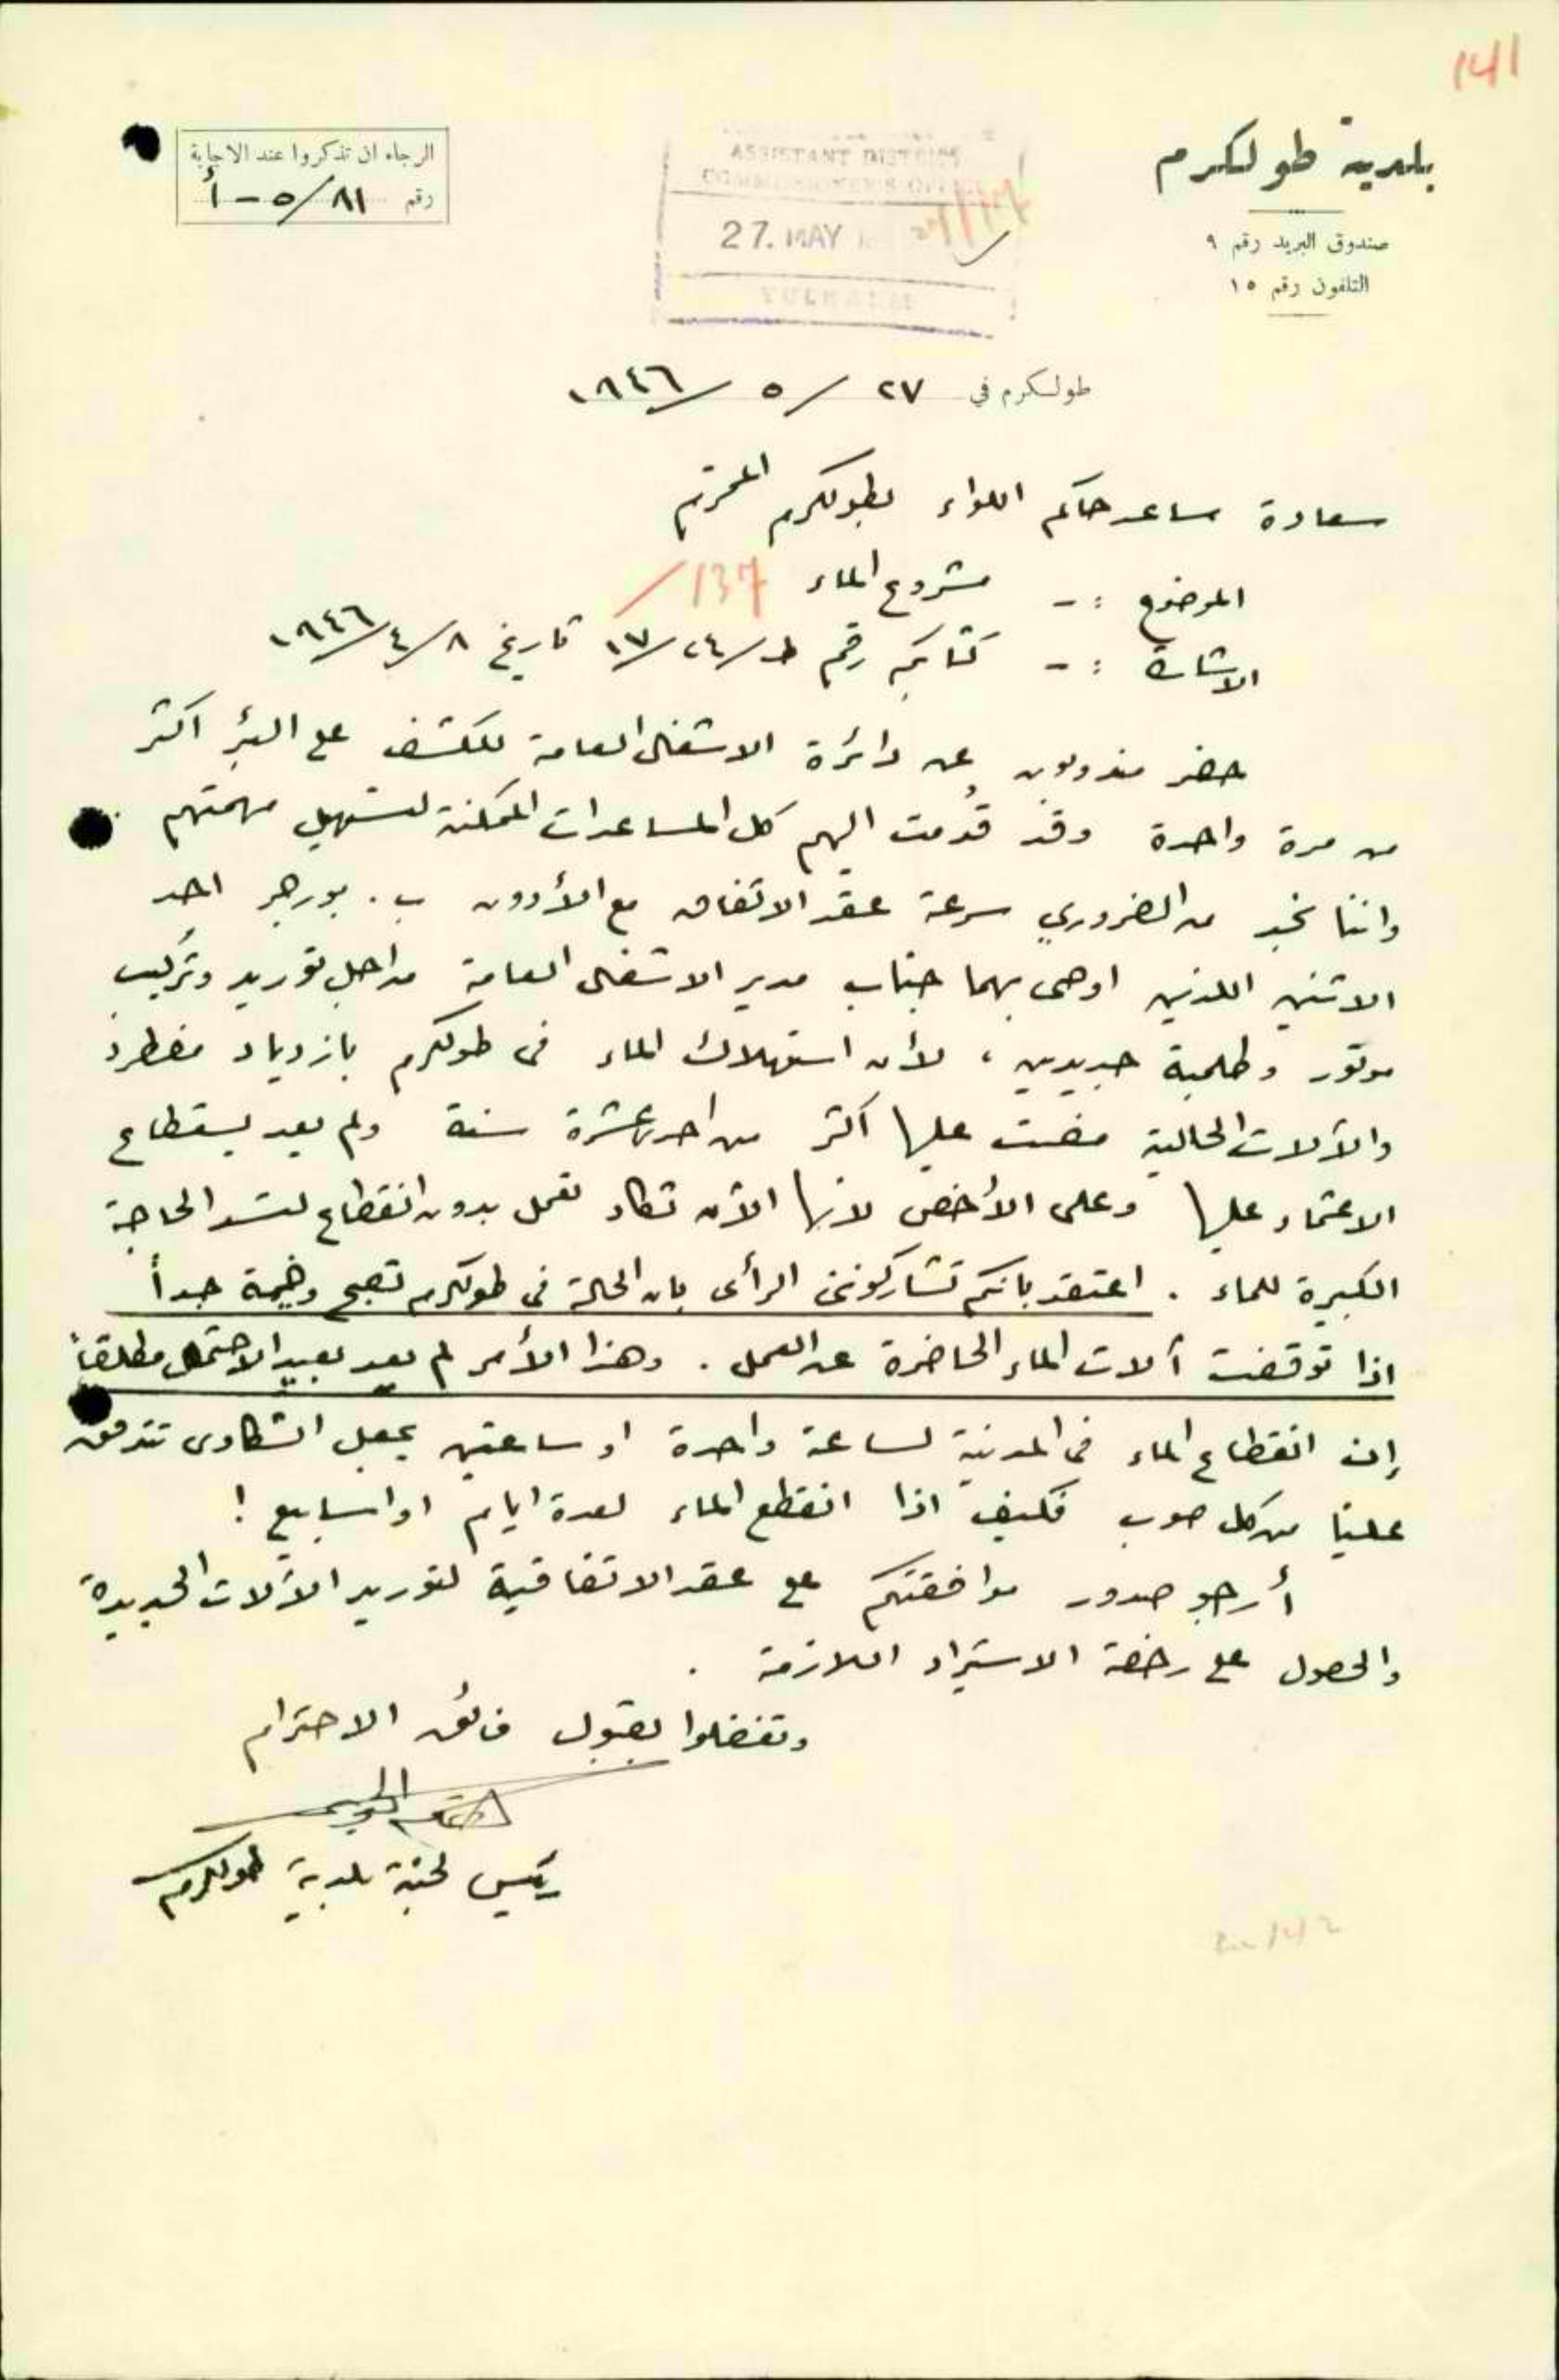 141
بلدية طولكرم
صندوق البريد رقم ٩
التلفون رقم ١٥
ASSISTANT DISTRICT
COMMISSIONER'S OFFICE
27. MAY
TULKARM
الرجاء ان تذكروا عند الاجابة
رقم ٥/٨١ - أ
طولكرم في ٢٧ / ٥ / ١٩٤٦
سعادة مساعد حاكم اللواء بطولكرم المحترم
الموضوع :- مشروع الماء 137/
الاشارة :- كتابكم رقم ط/٢٤/١٧ تاريخ ٨/٤/١٩٤٦
حضر مندوبون عن دائرة الاشغال العامة للكشف على البئر اكثر
من مرة واحدة وقد قُدمت اليهم كل المساعدات الممكنة لتسهيل مهمتهم
واننا نجد من الضروري سرعة عقد الاتفاق مع الأدون ب. بورهر احد
الاثنين اللذين اوصى بهما جناب مدير الاشغال العامة من اجل توريد وتركيب
موتور وطلمبة جديدين ، لأن استهلاك الماء في طولكرم بازدياد مضطرد
والآلات الحالية مضت عليها اكثر من احدى عشرة سنة ولم يعد يستطاع
الاعتماد عليها وعلى الأخص لانها الآن تكاد تعمل بدون انقطاع لتسد الحاجة
الكبيرة للماء . اعتقد بانكم تشاركونني الرأي بان الحالة في طولكرم تصبح وخيمة جداً
اذا توقفت آلات الماء الحاضرة عن العمل . وهذا الأمر لم يعد بعيد الاحتمال مطلقاً
إن انقطاع الماء في المدينة لساعة واحدة او ساعتين يجعل الشكاوى تتدفق
علينا من كل صوب فكيف اذا انقطع الماء لعدة ايام او اسابيع !
أرجو صدور موافقتكم على عقد الاتفاقية لتوريد الآلات الجديدة
والحصول على رخصة الاستيراد اللازمة .
وتفضلوا بقبول فائق الاحترام
رئيس لجنة بلدية طولكرم